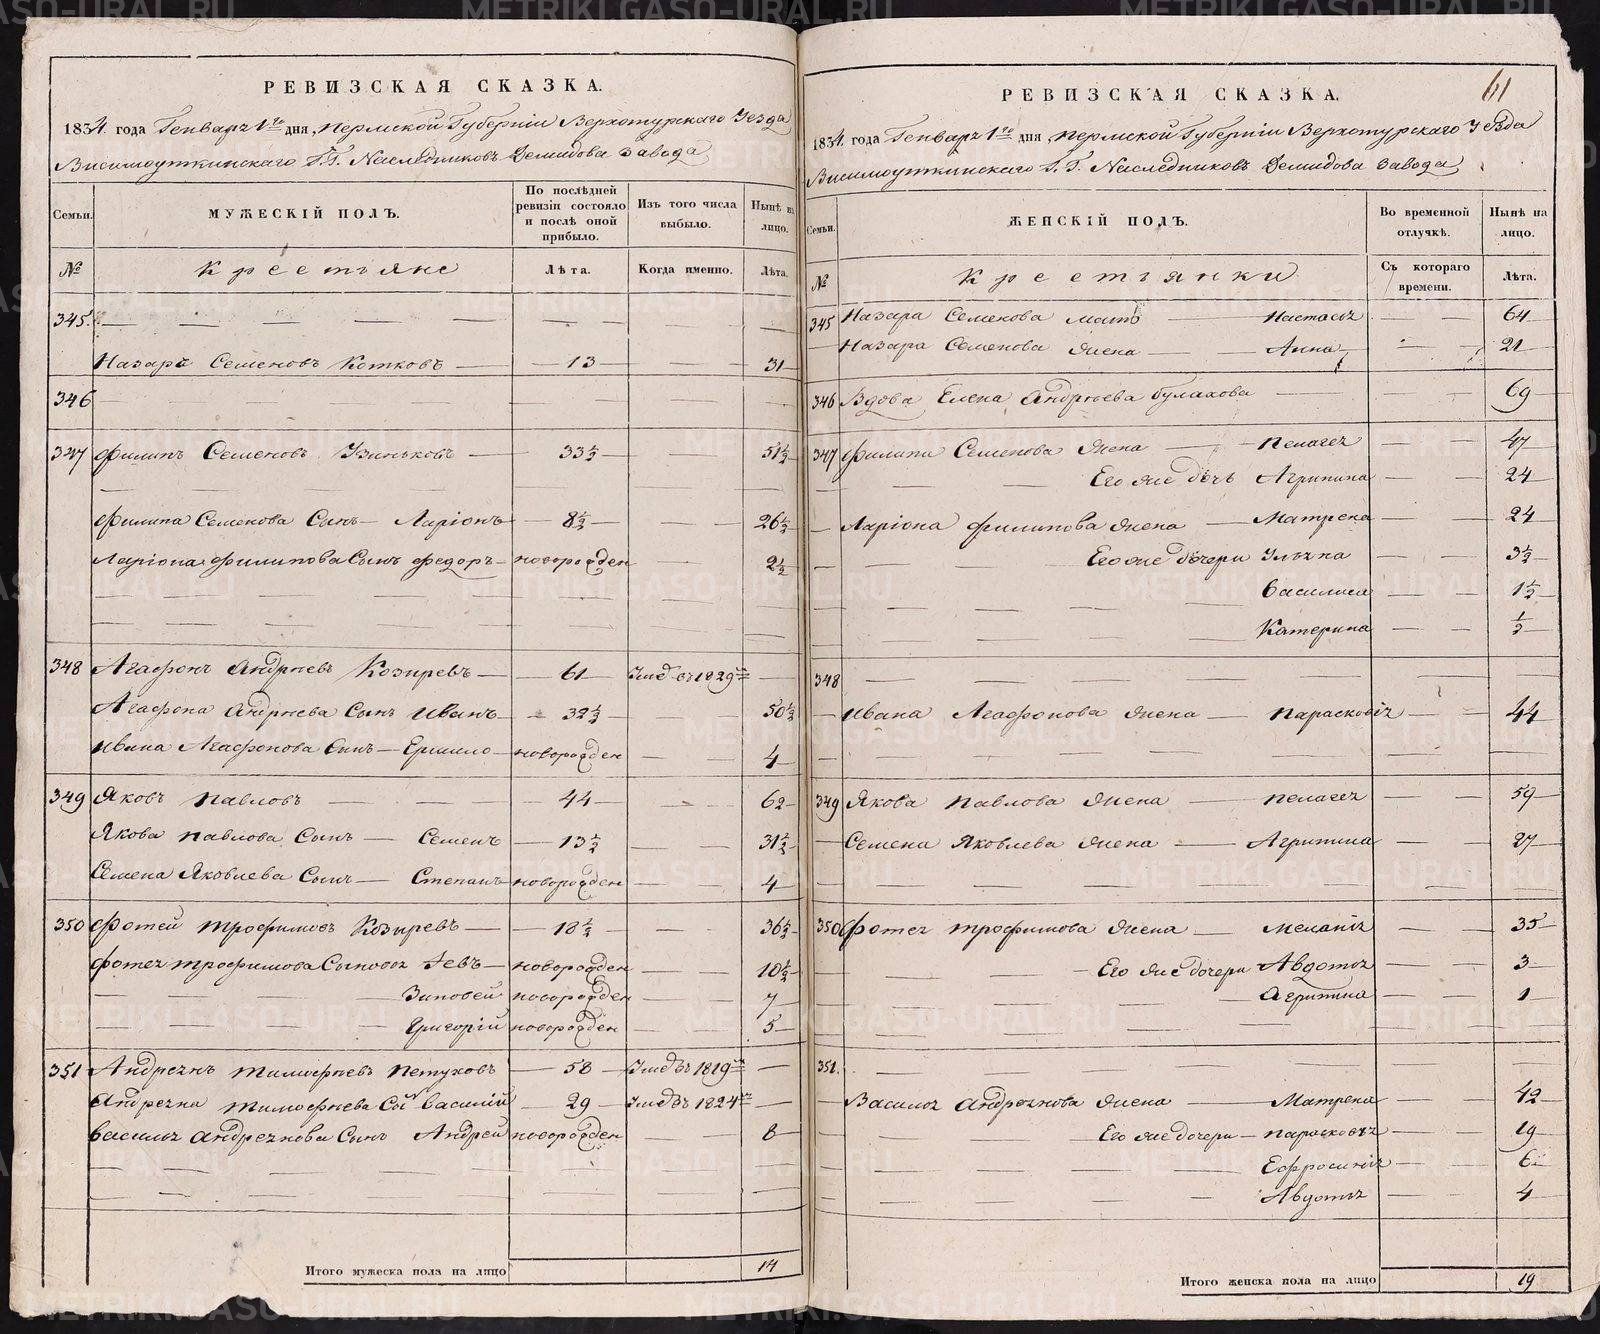 РЕВИЗСКАЯ СКАЗКА.
1834. года Генваря 1го дня, Пермской Губерніи Верхотурскаго Уезда
Висимоуткинскаго Г.Г. Наследниковъ Демидова Завода
Семьи.
МУЖЕСКІЙ ПОЛЪ.
По послѣдней ревизіи состояло и послѣ оной прибыло.
Изъ того числа выбыло.
Нынѣ на лицо.
№
Крестьяне
Лѣта.
Когда именно.
Лѣта.
345.
Назаръ Семеновъ Котковъ 13 31
346
347 Филипъ Семеновъ 33½ 51½
Филипа Семенова Сынъ Ларіонъ 8½ 26½
Ларіона Филипова Сынъ Федоръ новорожден 2½
348 Агафонъ Андреевъ Козыревъ 61 Умеръ въ 1829мъ
Агафона Андреева Сынъ Иванъ 32½ 50½
Ивана Агафонова Сынъ Ермило новорожден 4
349 Яковъ Павловъ 44 62
Якова Павлова Сынъ Семенъ 13½ 31½
Семена Яковлева Сынъ Степанъ новорожден 4
350 Фотей Трофимовъ Козыревъ 18½ 36½
Фотея Трофимова Сыновья Левъ новорожден 10½
Зиновей новорожден 7
Григорій новорожден 5
351 Андреянъ Тимофеевъ Петуховъ 58 Умеръ въ 1819мъ
Андреяна Тимофеева Сынъ Василій 29 Умеръ въ 1824мъ
Василья Андреянова Сынъ Андрей новорожден 8
Итого мужеска пола на лицо 14
61
РЕВИЗСКАЯ СКАЗКА.
1834. года Генваря 1го дня, Пермской Губерніи Верхотурскаго Уезда
Висимоуткинскаго Г.Г. Наследниковъ Демидова Завода
Семьи.
ЖЕНСКІЙ ПОЛЪ.
Во временной отлучкѣ.
Нынѣ на лицо.
№
Крестьянки
Съ котораго времени.
Лѣта.
345 Назара Семенова мать Настасья 64
Назара Семенова жена Анна 21
346 Вдова Елена Андреева Булахова 69
347 Филипа Семенова жена Пелагея 47
Его же дочь Агрипина 24
Ларіона Филипова жена Матрена 24
Его же дочери Ульяна 3½
Василиса 1½
Катерина ½
348
Ивана Агафонова жена Парасковія 44
349 Якова Павлова жена Пелагея 59
Семена Яковлева жена Агрипина 27
350 Фотея Трофимова жена Меланія 35
Его же дочери Авдотья 3
Агрипина 1
351.
Василья Андреянова жена Матрена 42
Его же дочери Парасковья 19
Ефросинія 6
Авдотья 4
Итого женска пола на лицо 19
METRIKI.GASO-URAL.RU